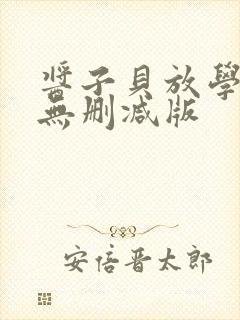 醬子貝放學
無刪減版
安倍晋太郎